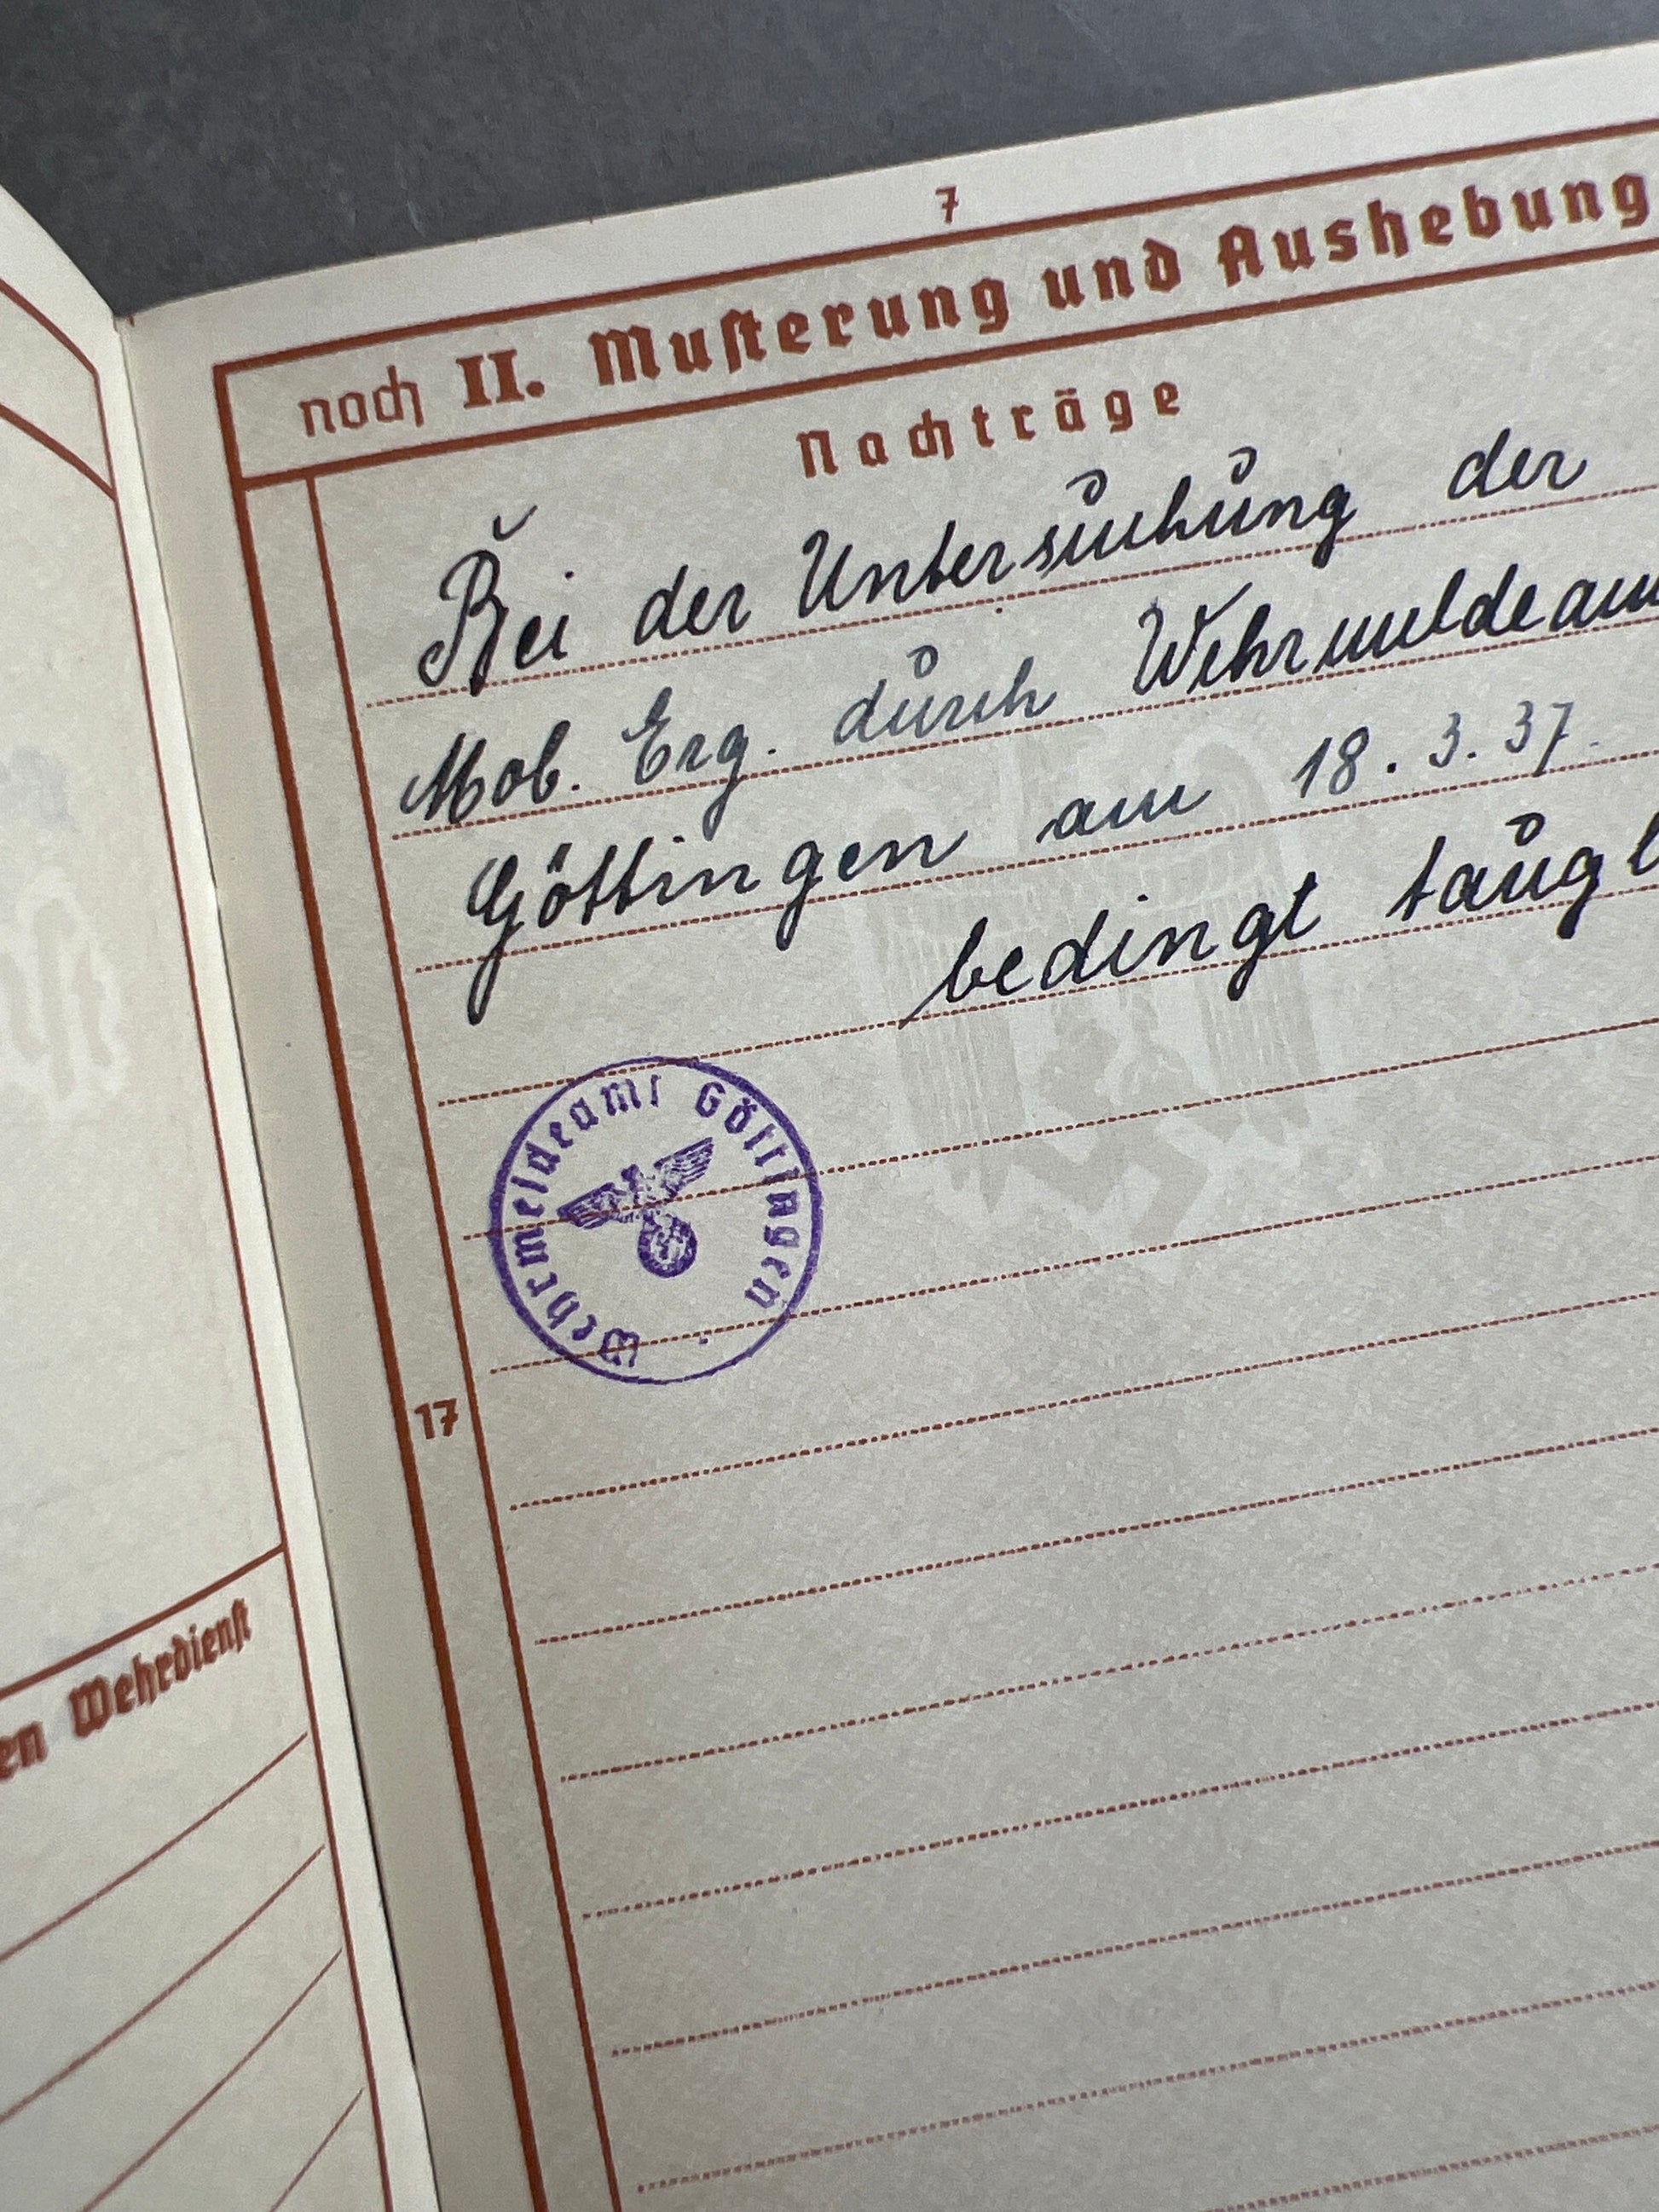 7
noch II. Musterung und Aushebung
Nachträge
Bei der Untersuchung der
Mob. Erg. durch Wehrmeldeam
Göttingen am 18. 3. 37.
bedingt taugl
Wehrmeldeamt Göttingen
17
en Wehrdienst